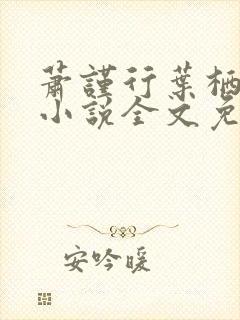 萧謹行葉栖
小說全文免
安吟暖